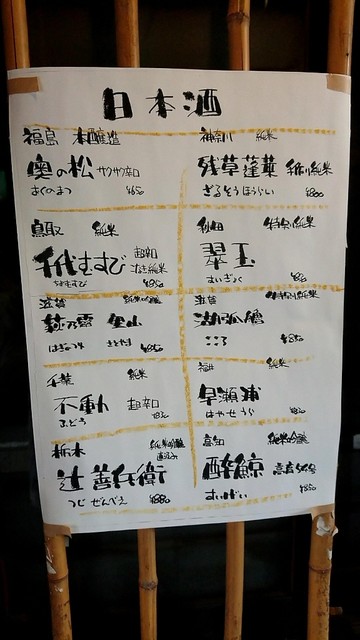 日本酒
福島 本醸造
奥の松 サクサク辛口
おくのまつ ¥650
神奈川 純米
残草蓬莱 純米
ざるそうほうらい ¥800
鳥取 純米
千代むすび 超辛口
ちよむすび ¥850
秋田 特別純米
翠玉
すいぎょく
滋賀
萩乃露 里山
はぎのつゆ さとやま ¥850
滋賀 特別純米
湖弧艪
ころ ¥850
千葉 純米
不動 超辛口
ふどう
福井 純米
早瀬浦
はやせうら
栃木 純米吟醸
辻善兵衛
つじ ぜんべえ ¥880
高知 純米吟醸
酔鯨
すいげい ¥850